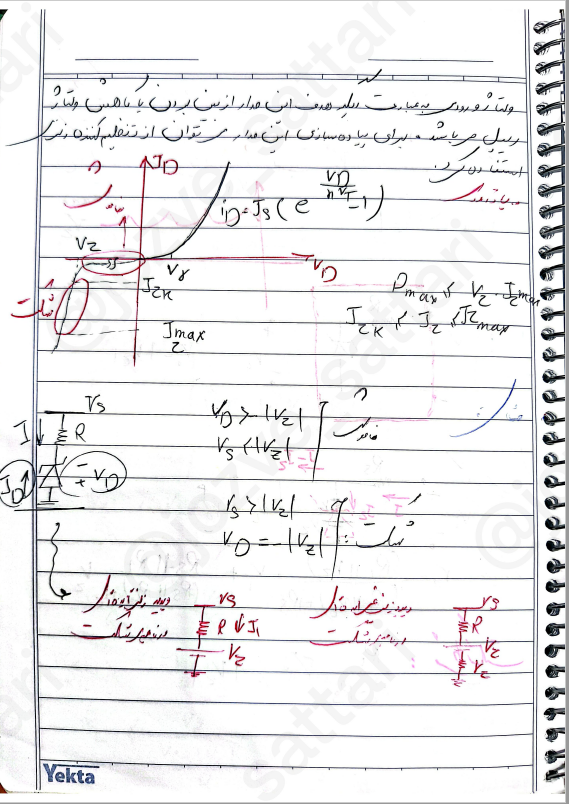 ولتاژ ورودی به عبارت دیگر هدف این مدار از بین بردن یا کاهش ولتاژ
ریپل می باشد. برای پیاده سازی این مدار می توان از تنظیم کننده زنری
استفاده کرد.
I_D
i_D = I_s ( e^{V_D / nV_T} - 1 )
V_z
V_γ
V_D
I_{zk}
I_{z max}
شکست
P_{max} ≤ V_z · I_{z max}
I_{zk} ≤ I_z ≤ I_{z max}
V_s
I
R
I_D
- + V_D
V_D > -|V_z|
V_s < |V_z|
خاموش
V_s > |V_z|
V_D = -|V_z|
شکست:
دیود زنر ایده آل
در ناحیه شکست
V_s
R ↓ I_1
V_z
دیود زنر غیر ایده آل
در ناحیه شکست
V_s
R
V_z
r_z
Yekta